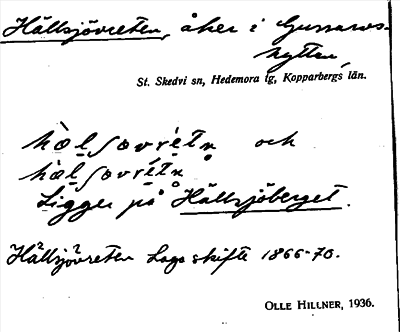 Hällsjövreten, åker i Gussarvs-
hyttan,
St. Skedvi sn, Hedemora tg, Kopparbergs län.
hæ̀lʃøvrètn̥ och
hæ̀lʃøvrétn̥
Ligger på Hällsjöberget.
Hällsjövreten Laga skifte 1866-70.
OLLE HILLNER, 1936.